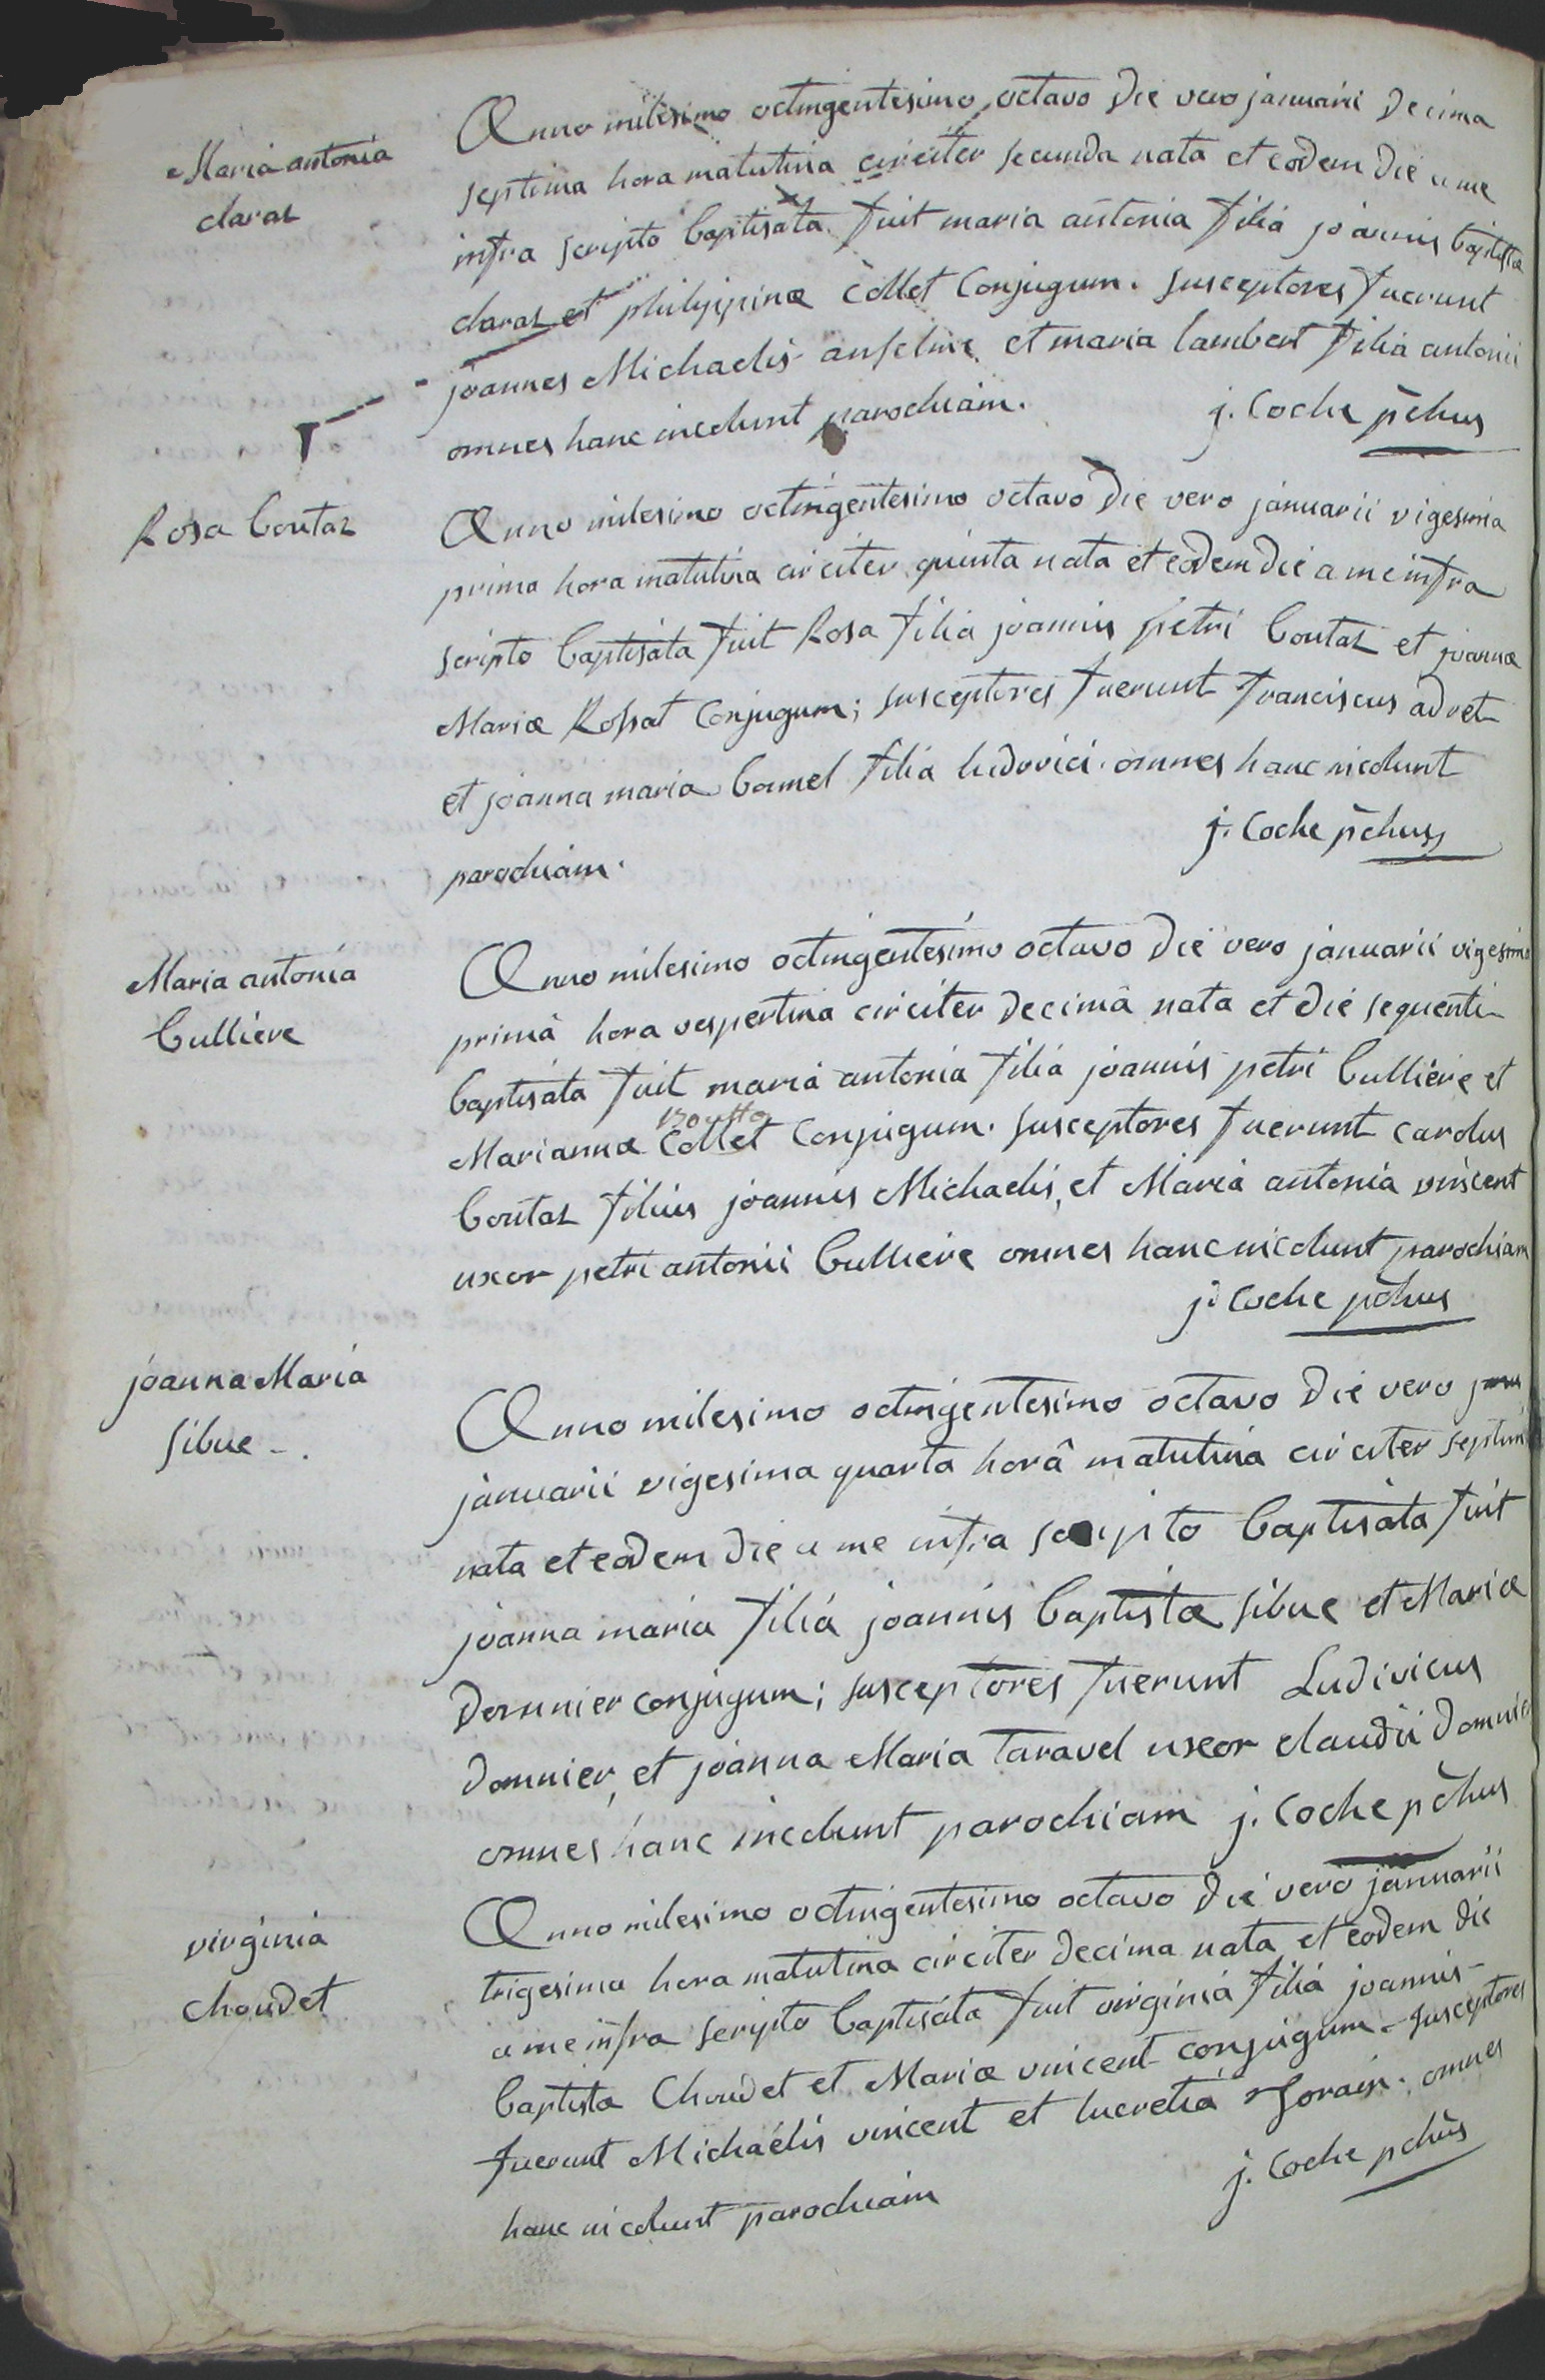 Maria antonia
claraz
Anno milesimo octingentesimo octavo die vero januarii decima
septima hora matutina circiter secunda nata et eodem die a me
infra scripto baptisata fuit maria antonia filia joannis baptistæ
claraz et philippinæ Collet Conjugum. susceptores fuerunt
joannes Michaelis anselme et maria lambert filia antonii
omnes hanc incolunt parochiam.
j. Coche pchus
Rosa boutaz
Anno milesimo octingentesimo octavo die vero januarii vigesima
prima hora matutina circiter quinta nata et eodem die a me infra
scripto baptisata fuit Rosa filia joannis petri boutaz et joannæ
Mariæ Rossat Conjugum; susceptores fuerunt franciscus advet
et joanna maria bomel filia ludovici. omnes hanc incolunt
j. Coche pchus
parochiam.
Maria antonia
Cullierе
Anno milesimo octingentesimo octavo die vero januarii vigesima
prima hora vespertina circiter decimâ nata et die sequenti
baptisata fuit maria antonia filia joannis petri Culliere et
Mariannæ Collet Conjugum. susceptores fuerunt carolus
boutaz filius joannis Michaelis, et Maria antonia vincent
uxor petri antonii Culliere omnes hanc incolunt parochiam
j. Coche pchus
joanna Maria
Sibue - .
Anno milesimo octingentesimo octavo die vero
januarii vigesima quarta horâ matutina circiter septima
nata et eodem die a me infra scripto baptisata fuit
joanna maria filia joannis baptistæ Sibue et Mariæ
Domnier conjugum; susceptores fuerunt Ludivicus
domnier, et joanna Maria Taravel uxor claudii domnier
omnes hanc incolunt parochiam j. Coche pchus
virginia
choudet
Anno milesimo octingentesimo octavo die vero januarii
trigesima hora matutina circiter decima nata et eodem die
a me infra scripto baptisata fuit virginia filia joannis
baptista Choudet et Mariæ vincent conjugum. susceptores
fuerunt Michaelis vincent et lucretia Jorain. omnes
j. Coche pchus
hanc incolunt parochiam